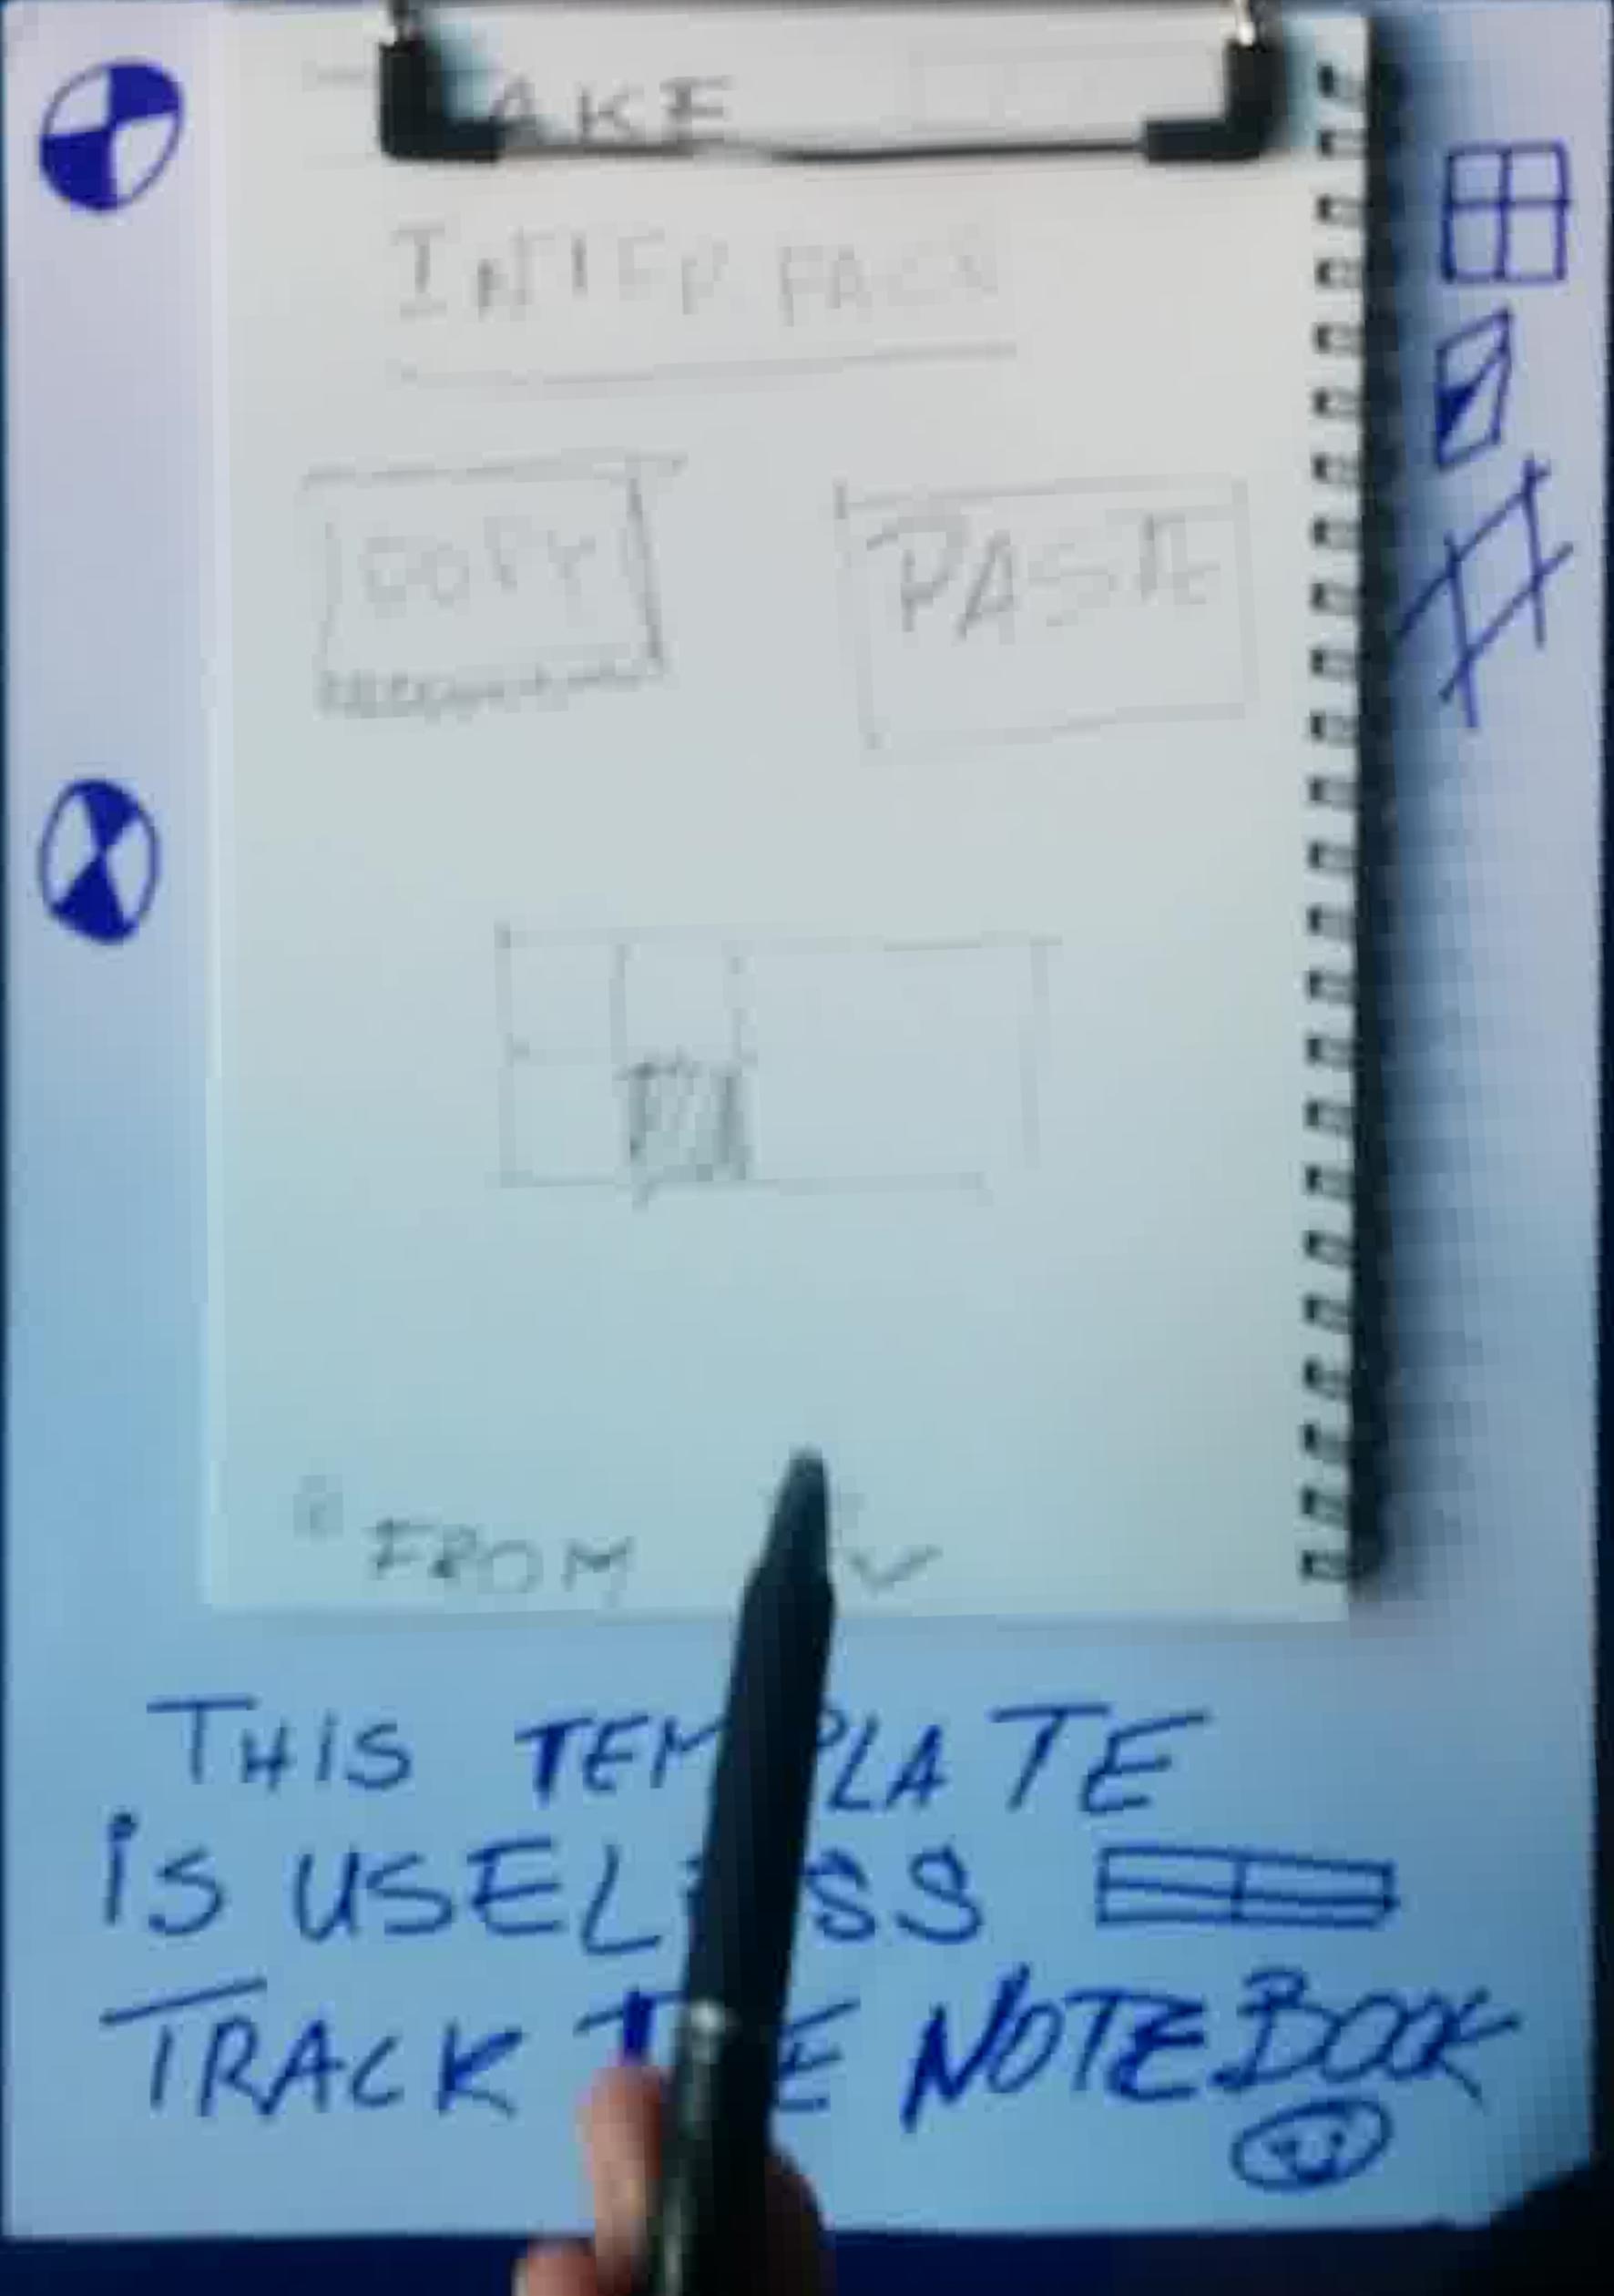 AKE
INTERFACE
COPY PASTE
FROM
THIS TEMPLATE
iS USELESS
TRACK THE NOTEBOOK